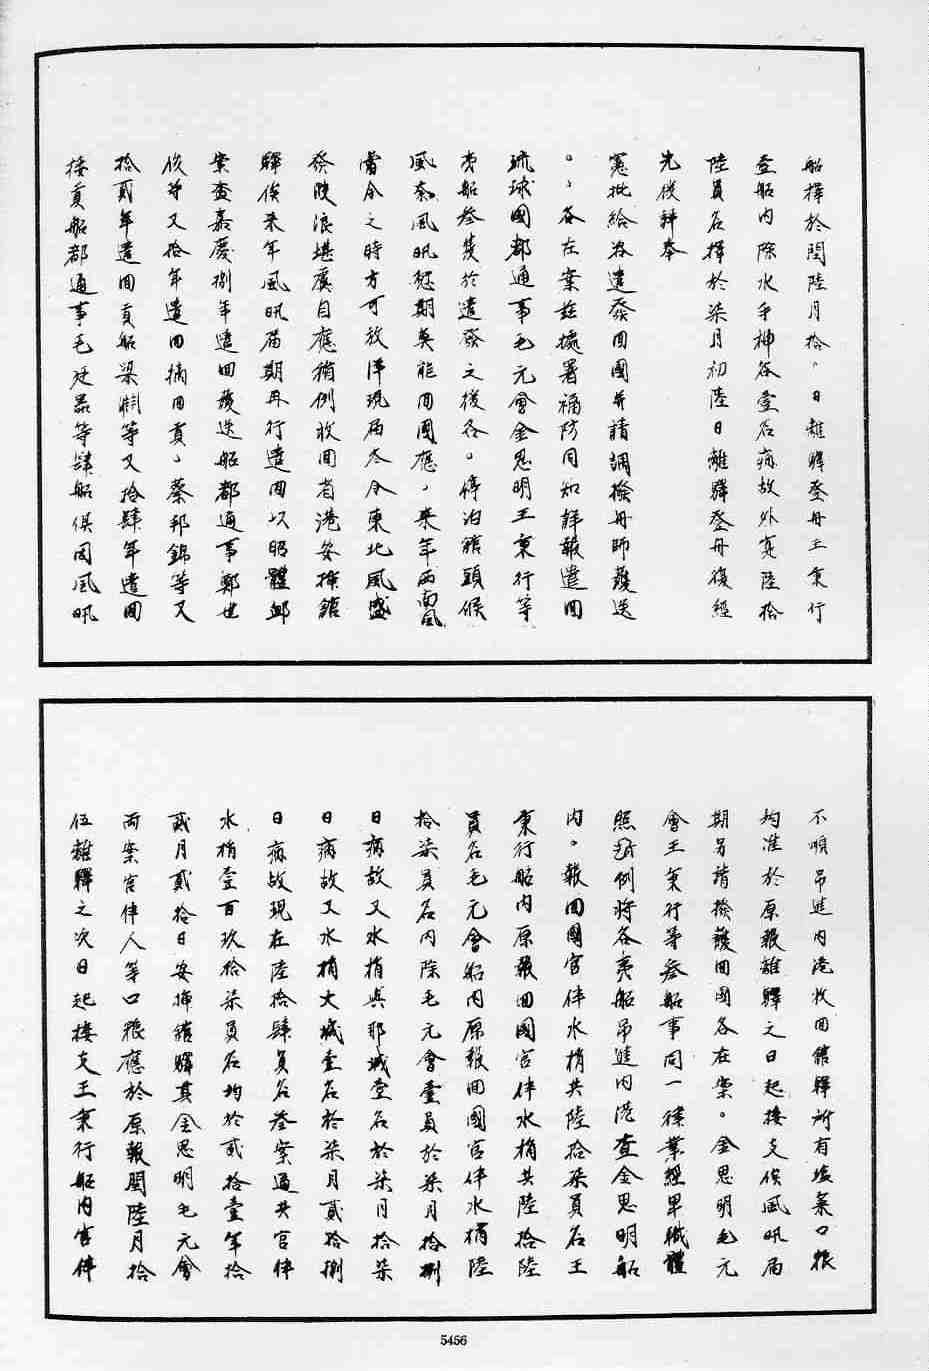 船擇於閏陸月拾〻日離驛登舟王秉行
壹船内除水手神谷壹名病故外實陸拾
陸員名擇於柒月初陸日離驛登舟復經
先後詳奉
憲批給咨遣發回國并請調撥舟師護送
〻〻各在案玆據署福防同知詳報遣回
琉球國都通事毛元會金思明王秉行等
夷船叁隻於遣發之後各〻停泊館頭候
風奈風帆愆期莫能回國應〻來年西南風
當令之時方可放洋現屆冬令東北風盛
發駛浪堪虞自應循例收回省港安揷館
驛俟來年風帆屆期再行遣回以昭體卹
案查嘉慶捌年遣回護送船都通事鄭世
俊等又拾年遣回摘回貢〻蔡邦錦等又
拾貳年遣回貢船梁淵等又拾肆年遣回
接貢船都通事毛廷器等肆船俱因風帆
不順吊進内港收回館驛所有塩菜口粮
均准於原報離驛之日起接支俟風帆屆
期另請撥護回國各在案〻金思明毛元
會王秉行等叁船事同一律業經卑職體
照例將各夷船吊進内港查金思明船
内〻報回國官伴水梢共陸拾柒員名王
秉行船内原報回國官伴水梢共陸拾陸
員名毛元會船内原報回國官伴水梢陸
拾柒員名内除毛元會壹員於柒月拾捌
日病故又水梢與那城壹名於柒月拾柒
日病故又水梢大城壹名於柒月貳拾捌
日病故現在陸拾肆員名叁案通共官伴
水梢壹百玖拾柒員名均於貳拾壹年拾
貳月貳拾日安揷館驛其金思明毛元會
兩案官伴人等口粮應於原報閏陸月拾
伍離驛之次日起接支王秉行船内官伴
5456